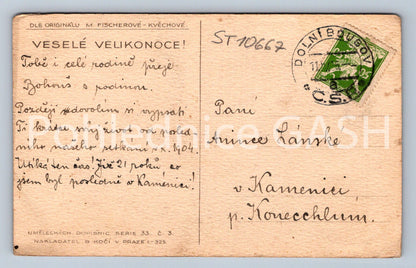 DLE ORIGINÁLU M. FISCHEROVÉ-KVĚCHOVÉ
VESELÉ VELIKONOCE!
ST 10667
Tobě i celé rodině přeje
Bohouš s rodinou.
Později dovolím si vypsati
Ti krátce svůj život od posled
ního našeho setkání v r. 1904.
Utíká ten čas! Již 21 roků, co
jsem byl posledně v Kamenici!
UMĚLECKÝCH DOPISNIC SERIE 33. Č. 3.
NAKLADATEL B. KOČÍ V PRAZE I.-325
DOLNÍ BOUSOV
Č.S.
Paní
Lánské
v Kamenici
p. Konecchlum.
Pohlednice CASH